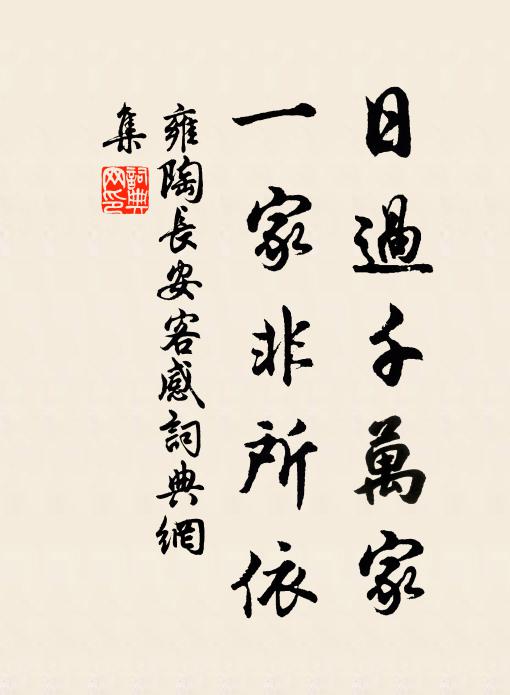 日過千萬家
一家非所依
雍陶長安客感詞典網
集
詞典
网印